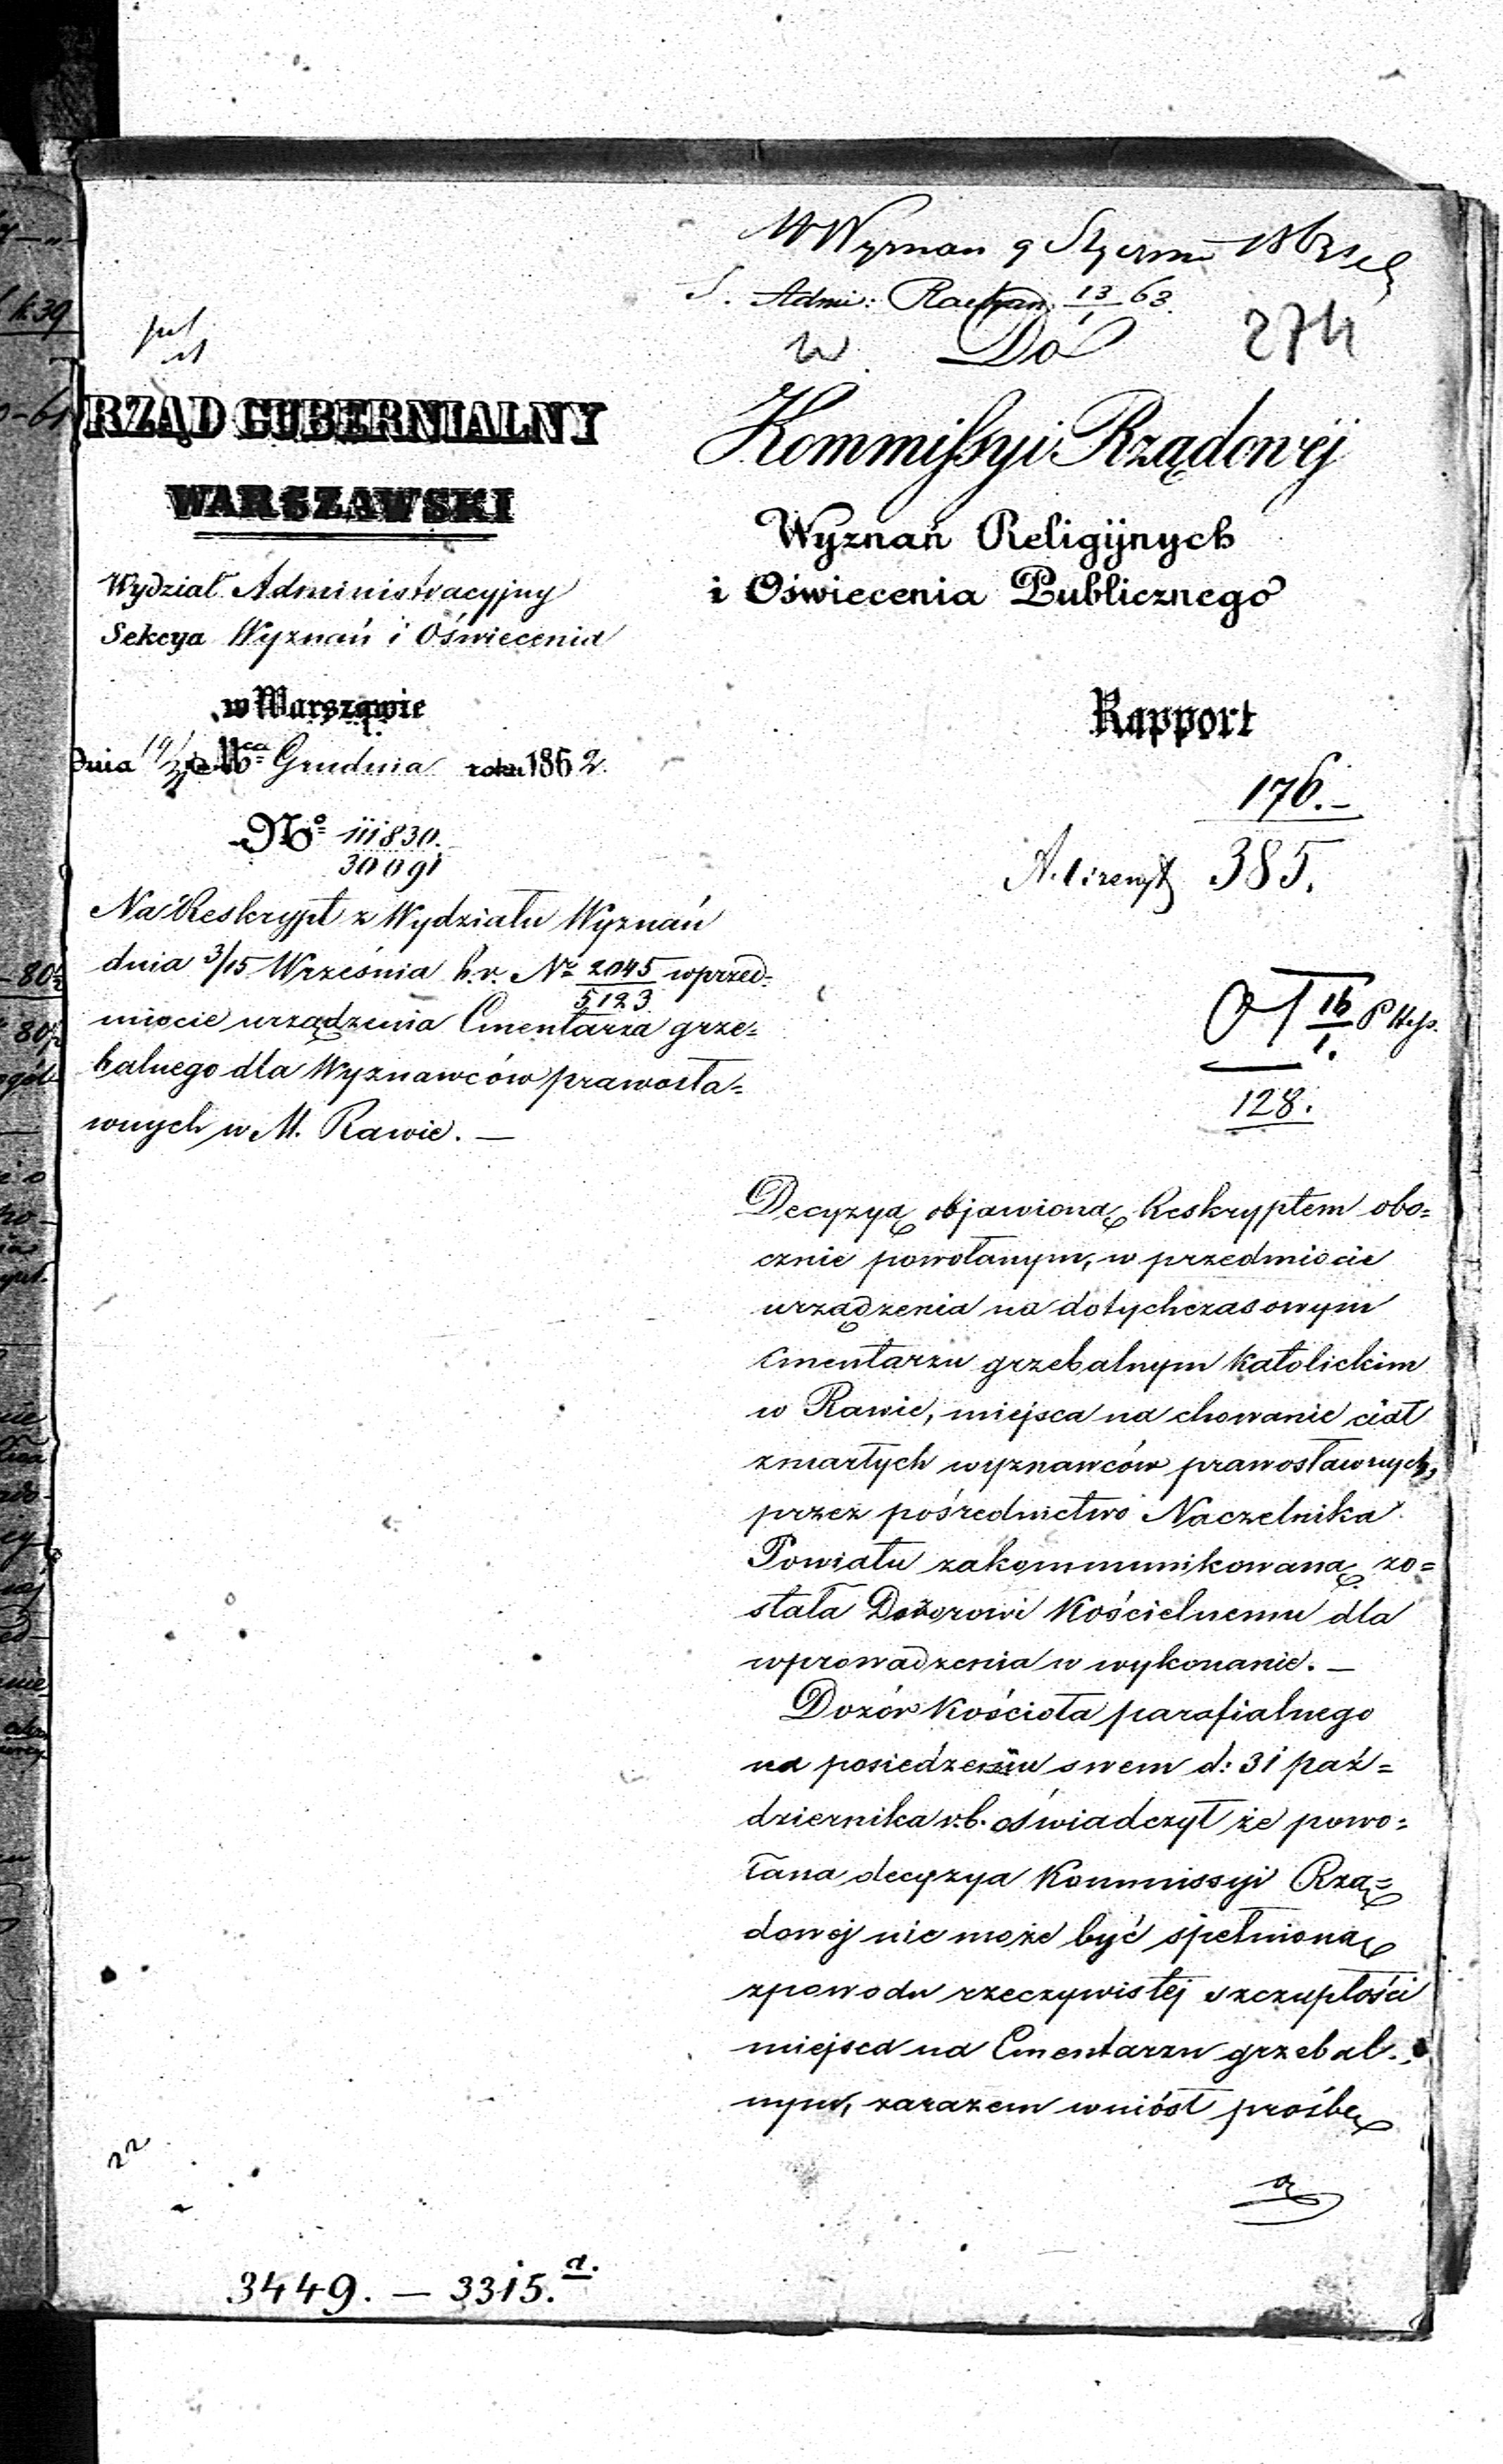 W Wyznań 9 Stycznia 1863
S. Admi: 13/1 63.
w Do 274
RZĄD GUBERNIALNY
WARSZAWSKI
Wydział Administracyjny
Sekcya Wyznań i Oświecenia
w Warszawie
Dnia 19/31 Mca Grudnia roku 1862.
No 111830.
30091
Na Reskrypt z Wydziału Wyznań
dnia 3/15 Września h.r. Nr 2045 w przed=
5123
miocie urządzenia Cmentarza grze=
balnego dla Wyznawców prawosła=
wnych w M. Rawie. —
Kommissyi Rządowéj
Wyznań Religijnych
i Oświecenia Publicznego
Rapport
176.—
385.
16
1.
128.
Decyzya objawiona Reskryptem obo=
cznie powołanym, w przedmiocie
urządzenia na dotychczasowym
Cmentarzu grzebalnym Katolickim
w Rawie, miejsca na chowanie ciał
zmarłych wyznawców prawosławnych,
przez pośrednictwo Naczelnika
Powiatu zakommunikowaną zo=
stała Dozorowi Kościelnemu dla
wprowadzenia w wykonanie. —
Dozór Kościoła parafialnego
na posiedzeniu swem d: 31 paź=
dziernika r.b. oświadczył że powo=
łana decyzya Kommissyi Rzą=
dowej nie może być spełnioną
z powodu rzeczywistej szczupłości
miejsca na Cmentarzu grzebal=
nym, zarazem wniósł prośbę
22
3449. — 3315. a.